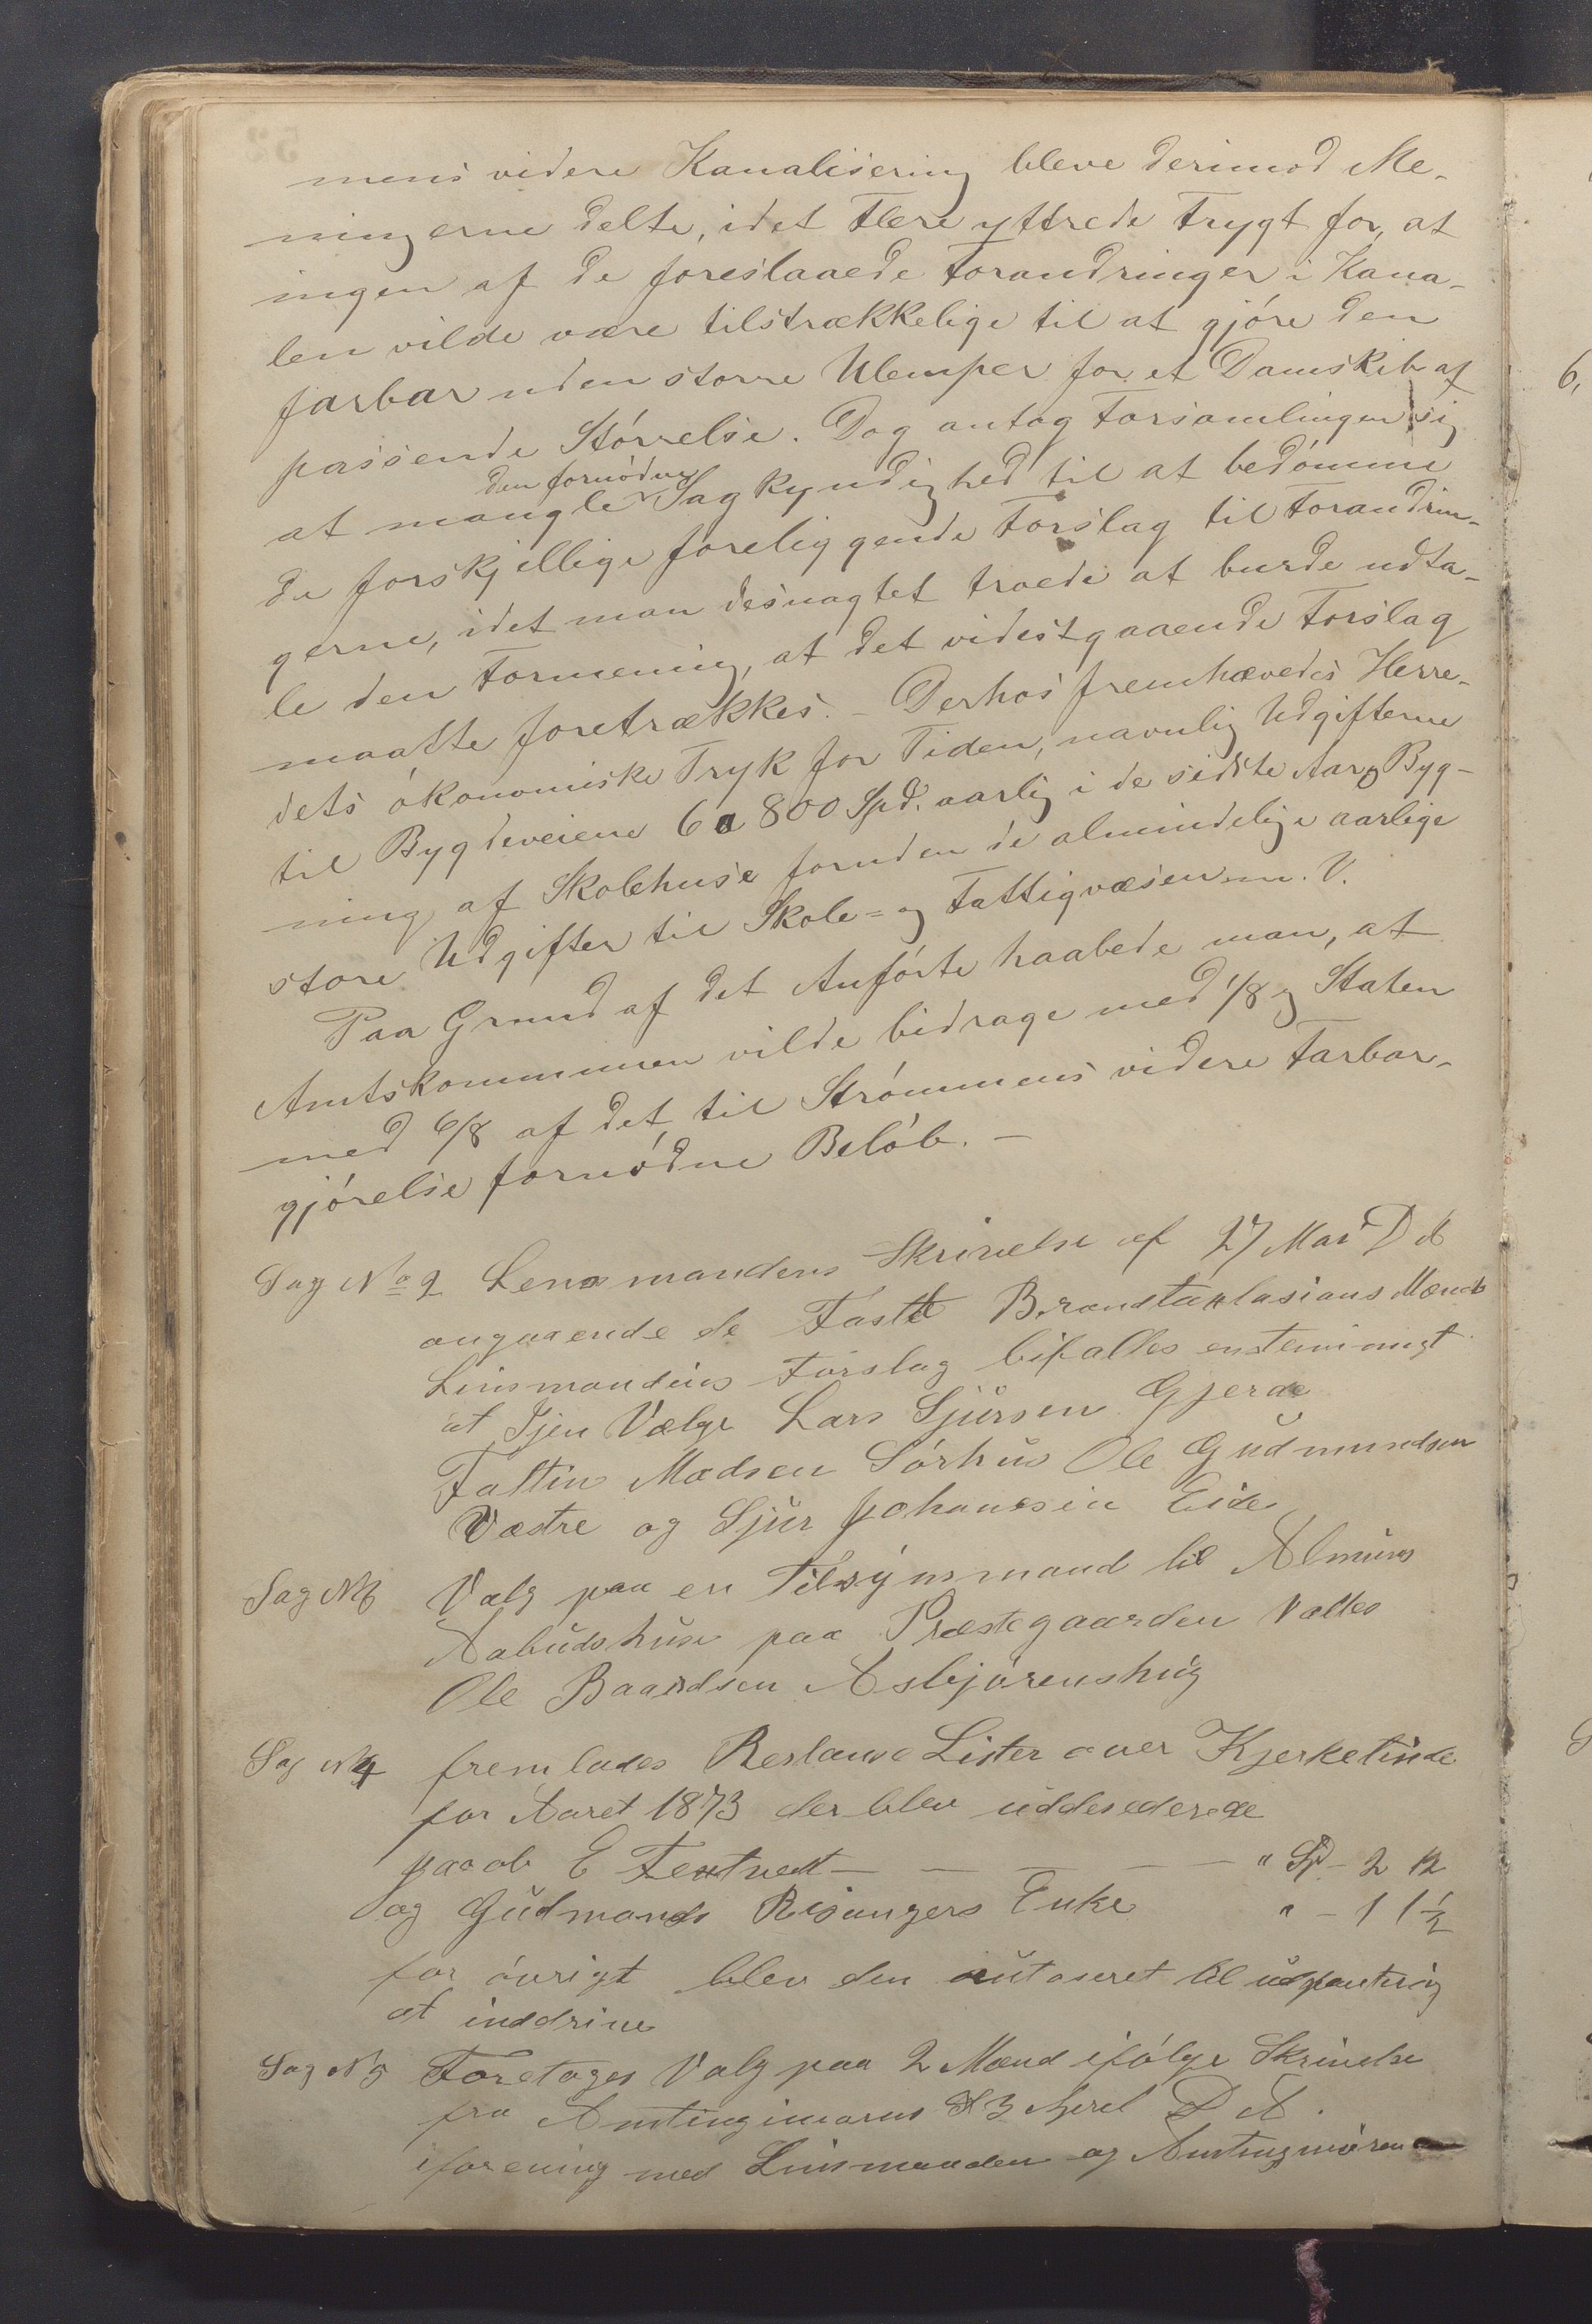 mens videre Kanalisering bleve derimod Me-
ningerne delte, idet Flere yttrede Frygt for, at
ingen af de foreslaaede Forandringer i Kana-
len vilde være tilstrækkelige til at gjóre den
farbar uden storre Ulemper for et Damskib af
passende Stórrelse. Dog antog Forsamlingen sig
den fornódne
at mangle Sagkyndighed til at bedómme
de forskjellige foreliggende Forslag til Forandrin-
gerne, idet man desuagtet troede at burde udta-
le den Formening, at det videstgaaende Forslag
maatte foretrækkes. – Derhos fremhævedes Herre-
dets ókonomiske Tryk for Tiden, navnlig Udgifterne
til Bygdeveiene 6 a 800 Spd. aarlig i de sidste Aar og Byg-
ning af Skolehuse foruden de almindelige aarlige
store Udgifter til Skole- og Fattigvæsen m. V.
Paa Grund af det Anfórte haabede man, at
Amtskommunen vilde bidrage med 1/8 og Staten
med 6/8 af det til Strómmens videre Farbar-
gjórelse fornódne Belób. –
Sag No 2 Lensmandens Skrivelse af 27 Mar D A
angaaende de Faste Brandtaxlasians Mænd
Linsmandens Forslag bifalles enstemmigt
at Igjen Vælge Lars Sjursen Gjerde
Faltin Madsen Sórhus Ole Gudmundsen
Væstre og Sjur Johanesen Eide
Sag N 6 Valg paa en Tilsynsmand til
Aabudshuse paa Præstegaarden Valtes
Ole Baardsen Asbjórenshug
Sag N 4 fremlades Restanse Lister over Kjerketinde
for Aaret 1873 der blev uddesederede
E – – – – " Spd – 2 12
og Gudmands Risangers Enke " – 1 1 1/2
for óvrigt blev den autoseret til udpanting
at inddrive
Sag N 5 Foretages Valg paa 2 Mænd ifólge Skrivelse
fra 3 Aprel D A.
iforening med Linsmanden og